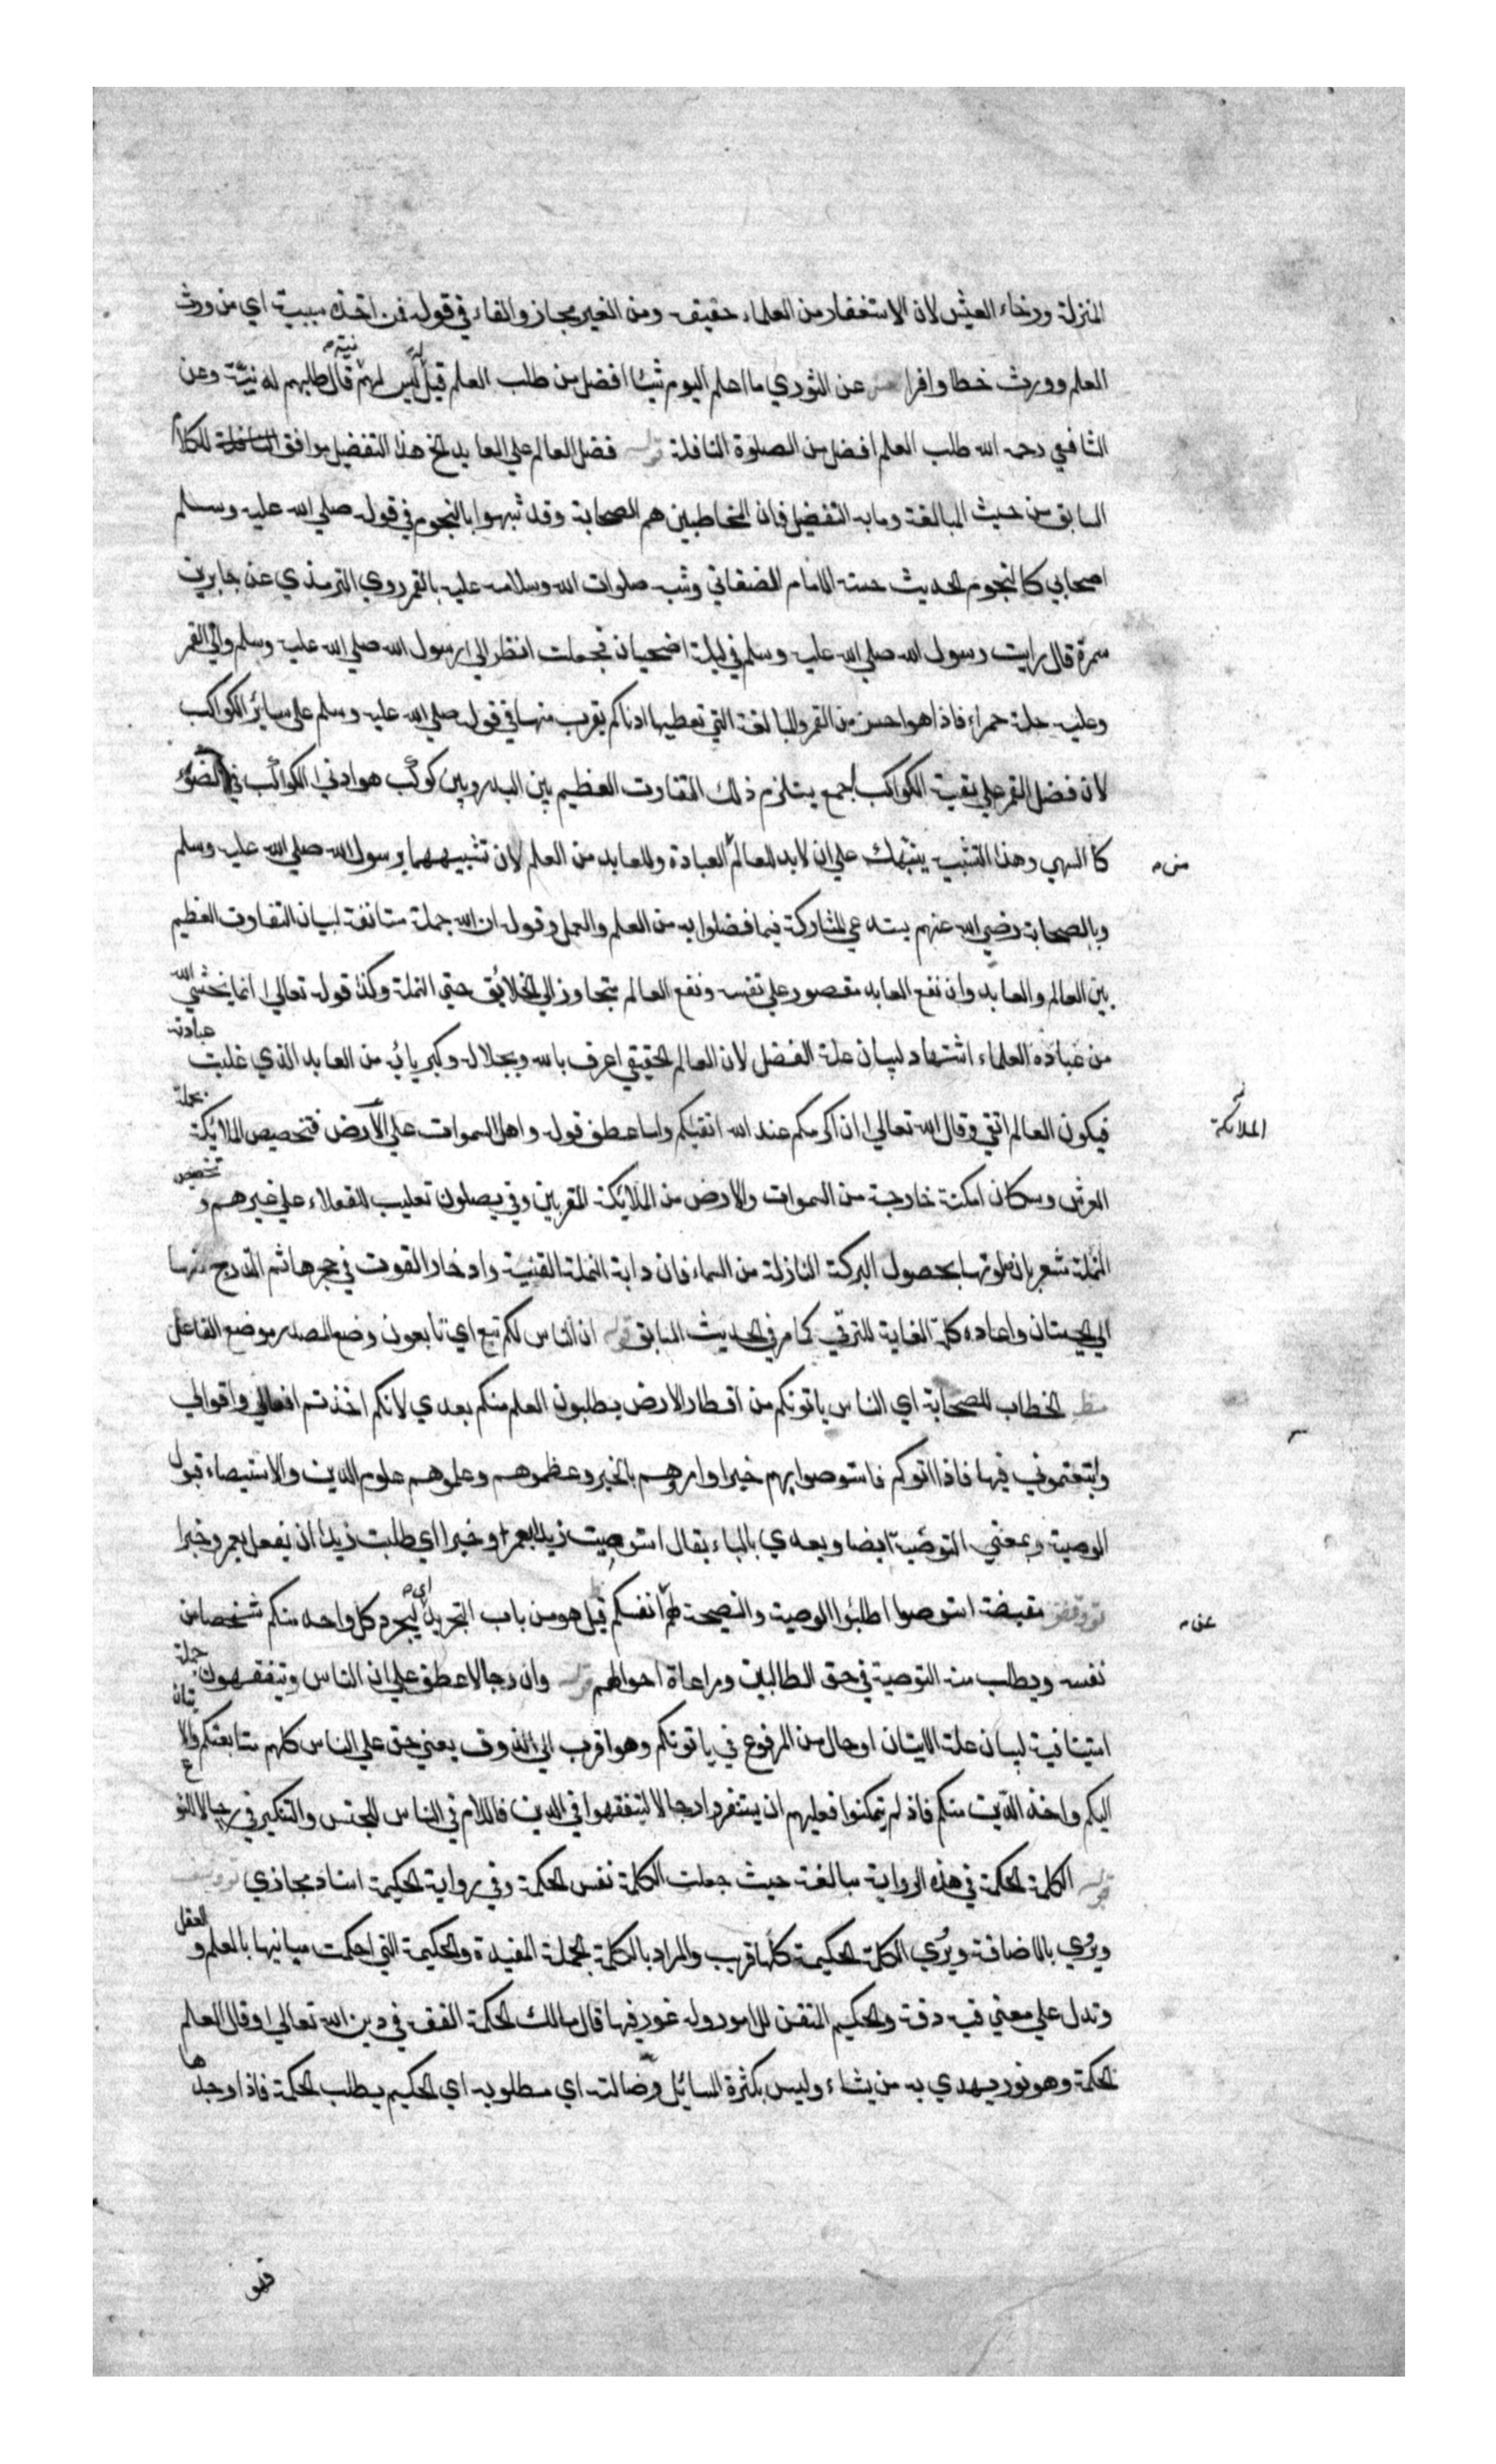 المنزلة ورخاء العيش لان الاستغفار من العلماء حقيقة ومن الغير مجاز والفاء في قوله فمن اخذه سببية اي من ورث
العلم وورث حظا وافرا عن الثوري ما اعلم اليوم شيئا افضل من طلب العلم قيل له ليس لهم نية قال طلبهم له نية وعن
الشافعي رحمه الله طلب العلم افضل من الصلوة النافلة قوله فضل العالم علي العابد الخ هذا التفضيل موافق للكلام
السابق من حيث المبالغة وما به التفضيل فان المخاطبين هم الصحابة وقد شبهوا بالنجوم في قوله صلي الله عليه وسلم
اصحابي كالنجوم الحديث حسنه الامام الصغاني وشبه صلوات الله وسلامه عليه بالقمر روي الترمذي عن جابر بن
سمرة قال رايت رسول الله صلي الله عليه وسلم في ليلة اضحيان فجعلت انظر الي رسول الله صلي الله عليه وسلم والي القمر
وعليه حلة حمراء فاذا هو احسن من القمر والمبالغة التي تعطيها ادناكم يقرب منها في قوله صلي الله عليه وسلم علي سائر الكواكب
لان فضل القمر علي بقية الكواكب اجمع يستلزم ذلك التفاوت العظيم بين البدر وبين كوكب هو ادني الكواكب في الضوء
كالسهي وهذا التشبيه ينبهك علي ان لابد للعالم من العبادة وللعابد من العلم لان تشبيههما برسول الله صلي الله عليه وسلم
وبالصحابة رضي الله عنهم يستدعي المشاركة فيما فضلوا به من العلم والعمل وقوله ان الله جملة مستانفة لبيان التفاوت العظيم
بين العالم والعابد وان نفع العابد مقصور علي نفسه ونفع العالم متجاوز الي الخلائق حتي النملة وكذا قوله تعالي انما يخشي الله
من عباده العلماء استشهاد لبيان علة الفضل لان العالم الحقيقي اعرف بالله وبجلاله وكبريائه من العابد الذي غلبت عبادته
فيكون العالم اتقي وقال الله تعالي ان اكرمكم عند الله اتقيكم وانما عطف قوله واهل السموات علي الملائكة الارض فتخصيص الملائكة بحملة
العرش وسكان امكنة خارجة من السموات والارض من الملائكة المقربين وفي يصلون تغليب للعقلاء علي غيرهم و تخصيص
النملة مشعر بان صلوتها بحصول البركة النازلة من السماء فان داب النملة القنية وادخار القوت في جحرها ثم التدرج منها
الي الحيتان واعادة كلمة الغاية للترقي كما مر في الحديث السابق قوله ان الناس لكم تبع اي تابعون وضع المصدر موضع الفاعل
مظ الخطاب للصحابة اي الناس ياتونكم من اقطار الارض يطلبون العلم منكم بعدي لانكم اخذتم افعالي واقوالي
واتبعتموني فيها فاذا اتوكم فاستوصوا بهم خيرا وامروهم بالخير وعظوهم وعلموهم علوم الدين والاستيصاء قبول
الوصية وبمعني التوصية ايضا ويعدي بالباء يقال استوصيت زيدا بعمرو خيرا اي طلبت زيدا ان يفعل بعمرو خيرا
استوصوا اطلبوا الوصية والنصيحة لهم عن انفسكم قيل هو من باب التجريد اي ليجرد كل واحد منكم شخصا من
نفسه ويطلب منه التوصية في حق الطالبين ومراعاة احوالهم قوله وان رجالا عطف علي ان الناس ويتفقهون جملة
استينافية لبيان علة الاتيان او حال من المرفوع في ياتونكم وهو اقرب الي الذوق يعني حق علي الناس كلهم متابعتكم والاتيان
اليكم واخذ الدين منكم فاذ لم يتمكنوا فعليهم ان يستنفروا رجالا ليتفقهوا في الدين فاللام في الناس للجنس والتنكير في رجالا للنوع
قوله الكلمة الحكمة في هذه الرواية مبالغة حيث جعلت الكلمة نفس الحكمة وفي رواية الحكيمة اسناد مجازي
ويروي بالاضافة ويروي الكلمة الحكيمة كلها قريب والمراد بالكلمة الجملة المفيدة والحكيمة التي احكمت مبانيها بالعلم والعقل
وتدل علي معني فيه دقة والحكيم المتقن للامور وله غور فيها قال مالك الحكمة الفقه في دين الله تعالي وقال العلم
الحكمة وهو نور يهدي به من يشاء وليس بكثرة المسائل وضالته اي مطلوبه اي الحكيم يطلب الحكمة فاذا وجدها
فهو